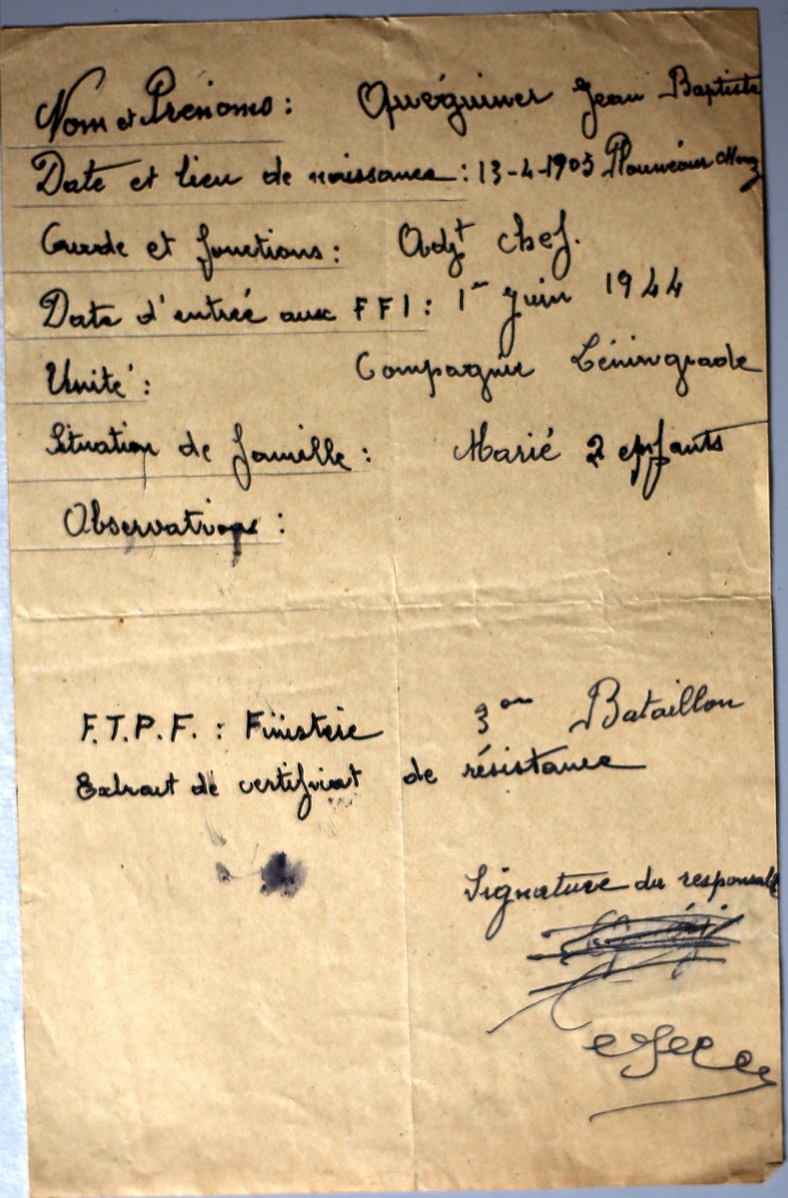 Nom et Prénoms : Quéguiner Jean Baptiste
Date et lieu de naissance : 13-4-1905 Plounéour Menez
Grade et fonctions : Adjt chef.
Date d'entrée aux FFI : 1er Juin 1944
Unité : Compagnie Léningrade
Situation de famille : Marié 2 enfants
Observations :
F.T.P.F. : Finistère 3em Bataillon
Extrait de certificat de résistance
Signature du responsable